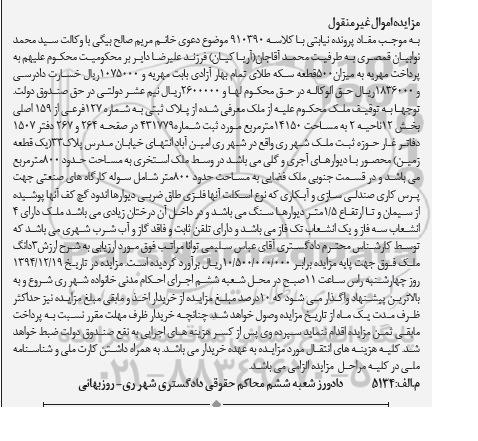 مزایده اموال غیر منقول
به موجب مفاد پرونده نیابتی با کلاسه ۹۱۰۳۹۰ موضوع دعوی خانم مریم صالح بیگی با وکالت سید محمد
نوابیان قمصری به طرفیت محمد آقاجان (آریا کیان) فرزند علیرضا دایر بر محکومیت محکوم علیهم به
پرداخت مهریه به میزان ۵۰۰قطعه سکه طلای تمام بهار آزادی بابت مهریه و ۱۰۷۵۰۰۰ریال خسارت دادرسی
و ۱۸۳۶۰۰۰ریال حق الوکاله در حق محکوم لها و ۲۶۰۰۰۰۰ریال نیم عشر دولتی در حق صندوق دولت.
توجها به توقیف ملک محکوم علیه از ملک معرفی شده از پلاک ثبتی به شماره ۱۲۷فرعی از ۱۵۹ اصلی
بخش ۱۲ناحیه ۲ به مساحت ۱۴۱۵۰مترمربع مورد ثبت شماره۴۳۱۷۷۹ در صفحه ۲۶۴ و ۲۶۷ دفتر ۱۵۰۷
دفاتر غار حوزه ثبت ملک شهر ری واقع در شهر ری امین آباد انتهای خیابان مدرس پلاک۳۳(یک قطعه
زمین) محصور با دیوارهای آجری و گلی می باشد در وسط ملک استخری به مساحت حدود ۸۰۰مترمربع
می باشد و در قسمت جنوبی ملک فضایی به مساحت حدود ۸۰۰متر شامل سوله کارگاه های صنعتی جهت
پرس کاری صندلی سازی و آبکاری که نوع اسکلت آنها فلزی طاق ضربی دیوارها اندود گچ کف آنها پوشیده
از سیمان و تا ارتفاع ۱/۵متر دیوارها سنگ می باشد و در داخل آن درختان زیادی می باشد ملک دارای ۴
انشعاب سه فاز و یک انشعاب تک فاز می باشد و دارای تلفن ثابت و فاقد گاز و آب شرب شهری می باشد که
توسط کارشناس محترم دادگستری آقای عباس سلیمی توانا مراتب فوق مورد ارزیابی به شرح ارزش۳دانگ
ملک فوق جهت پایه مزایده برابر ۱۰/۵۰۰/۰۰۰/۰۰۰ریال برآورد گردیده است. مزایده در تاریخ ۱۳۹۴/۱۲/۱۹
روز چهارشنبه راس ساعت ۱۱صبح در محل شعبه ششم اجرای احکام مدنی خانواده شهر ری شروع و به
بالاترین پیشنهاد واگذار می شود که ۱۰درصد مبلغ مزایده از خریدار اخذ و مابقی مبلغ مزایده نیز حداکثر
ظرف مدت یک ماه از تاریخ مزایده وصول خواهد شد چنانچه خریدار ظرف مهلت مقرر نسبت به پرداخت
مابقی ثمن مزایده اقدام ننماید سپرده وی پس از کسر هزینه های اجرایی به نفع صندوق دولت ضبط خواهد
شد. کلیه هزینه های انتقال مورد مزایده به عهده خریدار می باشد. به همراه داشتن کارت ملی و شناسنامه
ملی در کلیه مراحل مزایده الزامی می باشد.
م.الف:۵۱۳۴ دادورز شعبه ششم محاکم حقوقی دادگستری شهر ری- روزبهانی